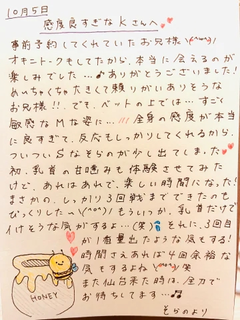 10月5日
感度良すぎな Kさんへ
事前予約してくれていたお兄様\(^^)/
オキニトークもしてたから、本当に会えるのが
楽しみでした…♪ありがとうございました!
めちゃくちゃ大きくて頼りがいありそうな
お兄様!!でも、ベットの上では…すごく
敏感なMな姿に…///全身の感度が本当
に良すぎて、反応もしっかりしてくれるから、
ついついSなそらのが少し出てしまった
初、乳首の甘噛みも体験させてみた
けど、あれはあれで、楽しい時間になった!
まさかの、しっかり3回戦までできたのも
びっくりした〜\(^o^)/もういっか、乳首だけで
イけそうな気がする…(笑)それに、3回目
が1番量出たような気もする!
時間さえあれば4回余裕な
気もするよね(笑
また仙台来た時は、全力で
お待ちしてます…♫
そらのより
HONEY